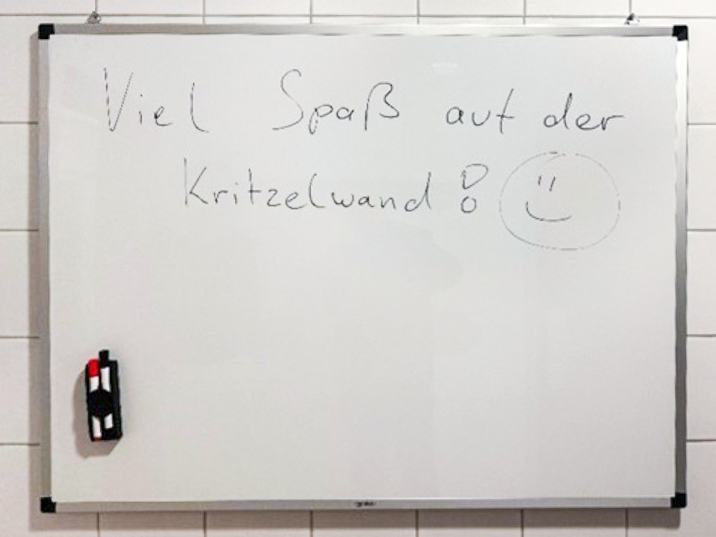 Viel Spaß auf der
Kritzelwand!